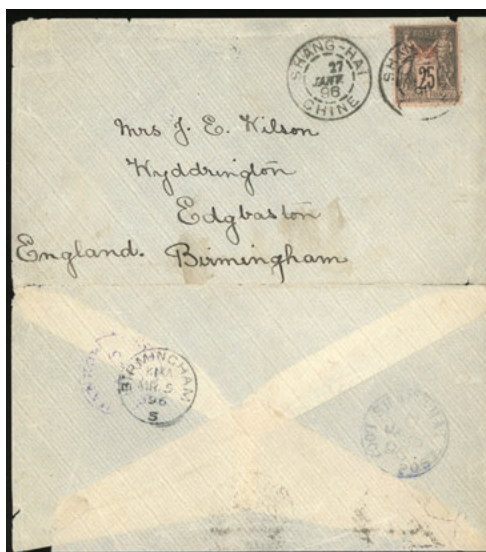 SHANG-HAI
27
JANV.
96
CHINE
25
Mrs J. E. Wilson
Wyddrington
Edgbaston
England. Birmingham
BIRMINGHAM
896
5